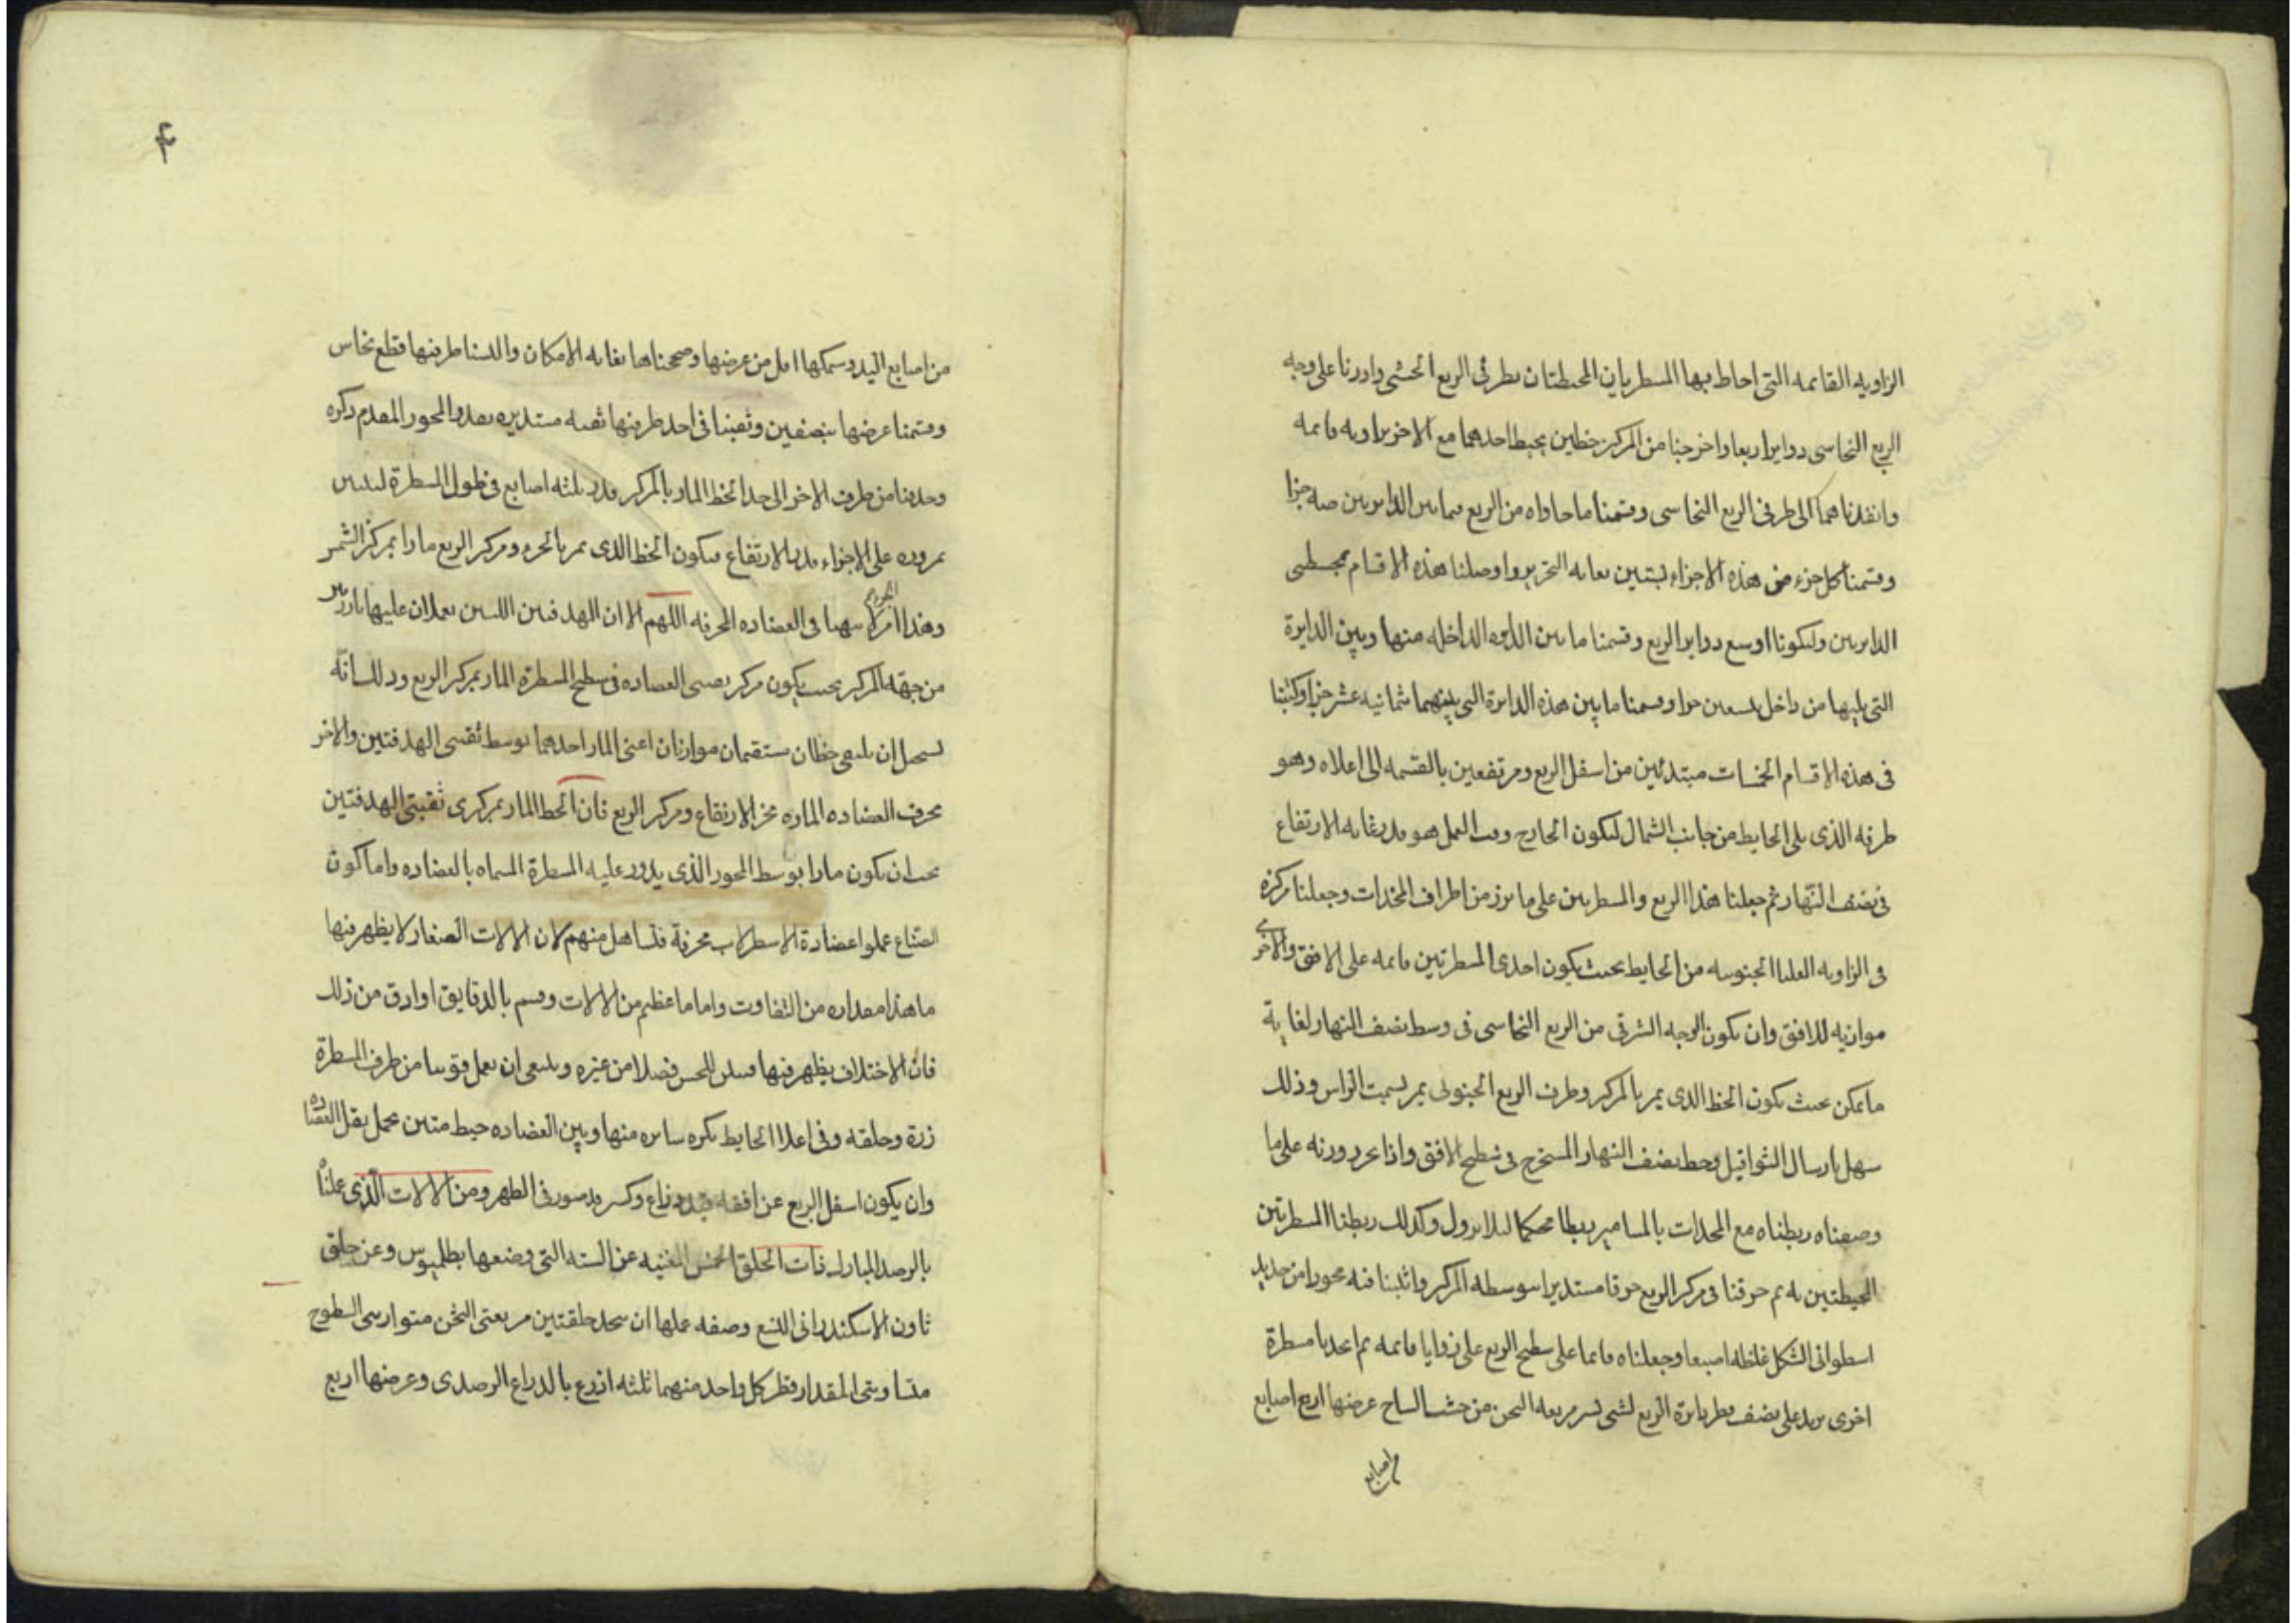 الزاويه القايمه التى احاط بها المسطرتان المحيطتان بطرفى الربع الخشبى وادرنا على وجه
الربع النحاسى دوايرا ربعا واخرجنا من المركز خطين يحيط احدهما مع الاخر بزاويه قايمه
وانفذناهما الى طرفى الربع النحاسى وقسمنا ما حاواه من الربع فيما بين الدايرتين جزا
وقسمنا كل جزء من هذه الاجزاء بستين بغايه التحرير واوصلنا هذه الاقسام بمحيطى
الدايرتين وليكونا اوسع دواير الربع وقسمنا ما بين الدايره الداخله منها وبين الدايرة
التى يليها من داخل بتسعين جزا وقسمنا ما بين هذه الدايرة التى يليهما ثمانيه عشر جزا وكتبنا
فى هذه الاقسام الخمسات مبتدئين من اسفل الربع ومرتفعين بالقسمه الى اعلاه وهو
طرفه الذى يلى الحايط من جانب الشمال ليكون الخارج وقت العمل هو قدر غايه الارتفاع
فى نصف النهار ثم جعلنا هذا الربع والمسطرتين على ما برز من اطراف المخدات وجعلنا مركزه
فى الزاويه العليا الجنوبيه من الحايط بحيث يكون احدى المسطرتين قايمه على الافق والاخرى
موازيه للافق وان يكون الوجه الشرقى من الربع النحاسى فى وسط نصف النهار لغاية
ما يمكن بحيث يكون الخط الذى يمر بالمركز وطرف الربع الجنوبى يمر بسمت الراس وذلك
سهل بارسال الثواقيل وخط نصف النهار المستخرج فى سطح الافق واذا حررت على ما
وصفناه ربطناه مع المخدات بالمسامير ربطا محكما ليلا يزول وكذلك ربطنا المسطرتين
المحيطتين به ثم خرقنا فى مركز الربع خرقا مستديرا بتوسطه المركز واثبتنا فيه محورا من حديد
اسطوانى الشكل غلظه اصبعا وجعلناه قايما على سطح الربع على زوايا قايمه ثم اتخذنا مسطرة
اخرى تزيد على نصف قطر دايرة الربع لشى يسير مربعه الثخن من خشب الساج عرضها اربع اصابع
من اصابع
من اصابع اليد وسمكها اقل من عرضها وصححناها بغايه الامكان والبسنا طرفيها قطع نحاس
وقسمنا عرضها بنصفين وثقبنا فى احد طرفيها ثقبه مستديره بقدر المحور المقدم ذكره
وحددنا من طرف الاخر الى حد الخط المار بالمركز قدر ثلثه اصابع فى طول المسطرة ليتبين
بمروره على الاجزاء قدر الارتفاع فيكون الخط الذى يمر بالحرف ومركز الربع مارا بمركز الشمس
وهذا امر سهيا فى العضاده المحرفه اللهم الا ان الهدفتين اللتين يعملان عليها
من جهه المركز بحيث يكون مركز ثقبتى العضاده فى سطح المسطرة المار بمركز الربع وذلك انه
يستحيل ان يلتقى خطان مستقيمان موازنان اعنى المار احدهما بوسط ثقبتى الهدفتين والاخر
بحرف العضاده الماره بجزء الارتفاع ومركز الربع فان الخط المار بمركزى ثقبتى الهدفتين
يجب ان يكون مارا بوسط المحور الذى يدور عليه المسطرة المسماه بالعضاده واما كون
الصناع عملوا عضادة الاسطرلاب محرفة فتساهل منهم لان الالات الصغار لا يظهر فيها
ما هذا مقداره من التفاوت واما ما عظم من الالات وقسم بالدقايق او ادق من ذلك
فان الاختلاف يظهر فيها ويتبين للحس فضلا من غيره وينبغى ان يعمل قوسا من طرف المسطرة
زرة وحلقه وفى اعلا الحايط بكره سايره منها وبين العضاده خيط متين يحمل ثقل العضاده
وان يكون اسفل الربع عن افقه بقدر ذراع وكسر وقد صور فى الظهر ومن الالات الذى عملناه
بالرصد المبارك ذات الحلق الخمس المغنيه عن السته التى وضعها بطلميوس وعن حلق
ثاون الاسكندرانى التسع وصفه عملها ان يتخذ حلقتين مربعتى الثخن متوازيتى السطوح
متساويتى المقدار قطر كل واحد منهما ثلثه اذرع بالذراع الرصدى وعرضها اربع